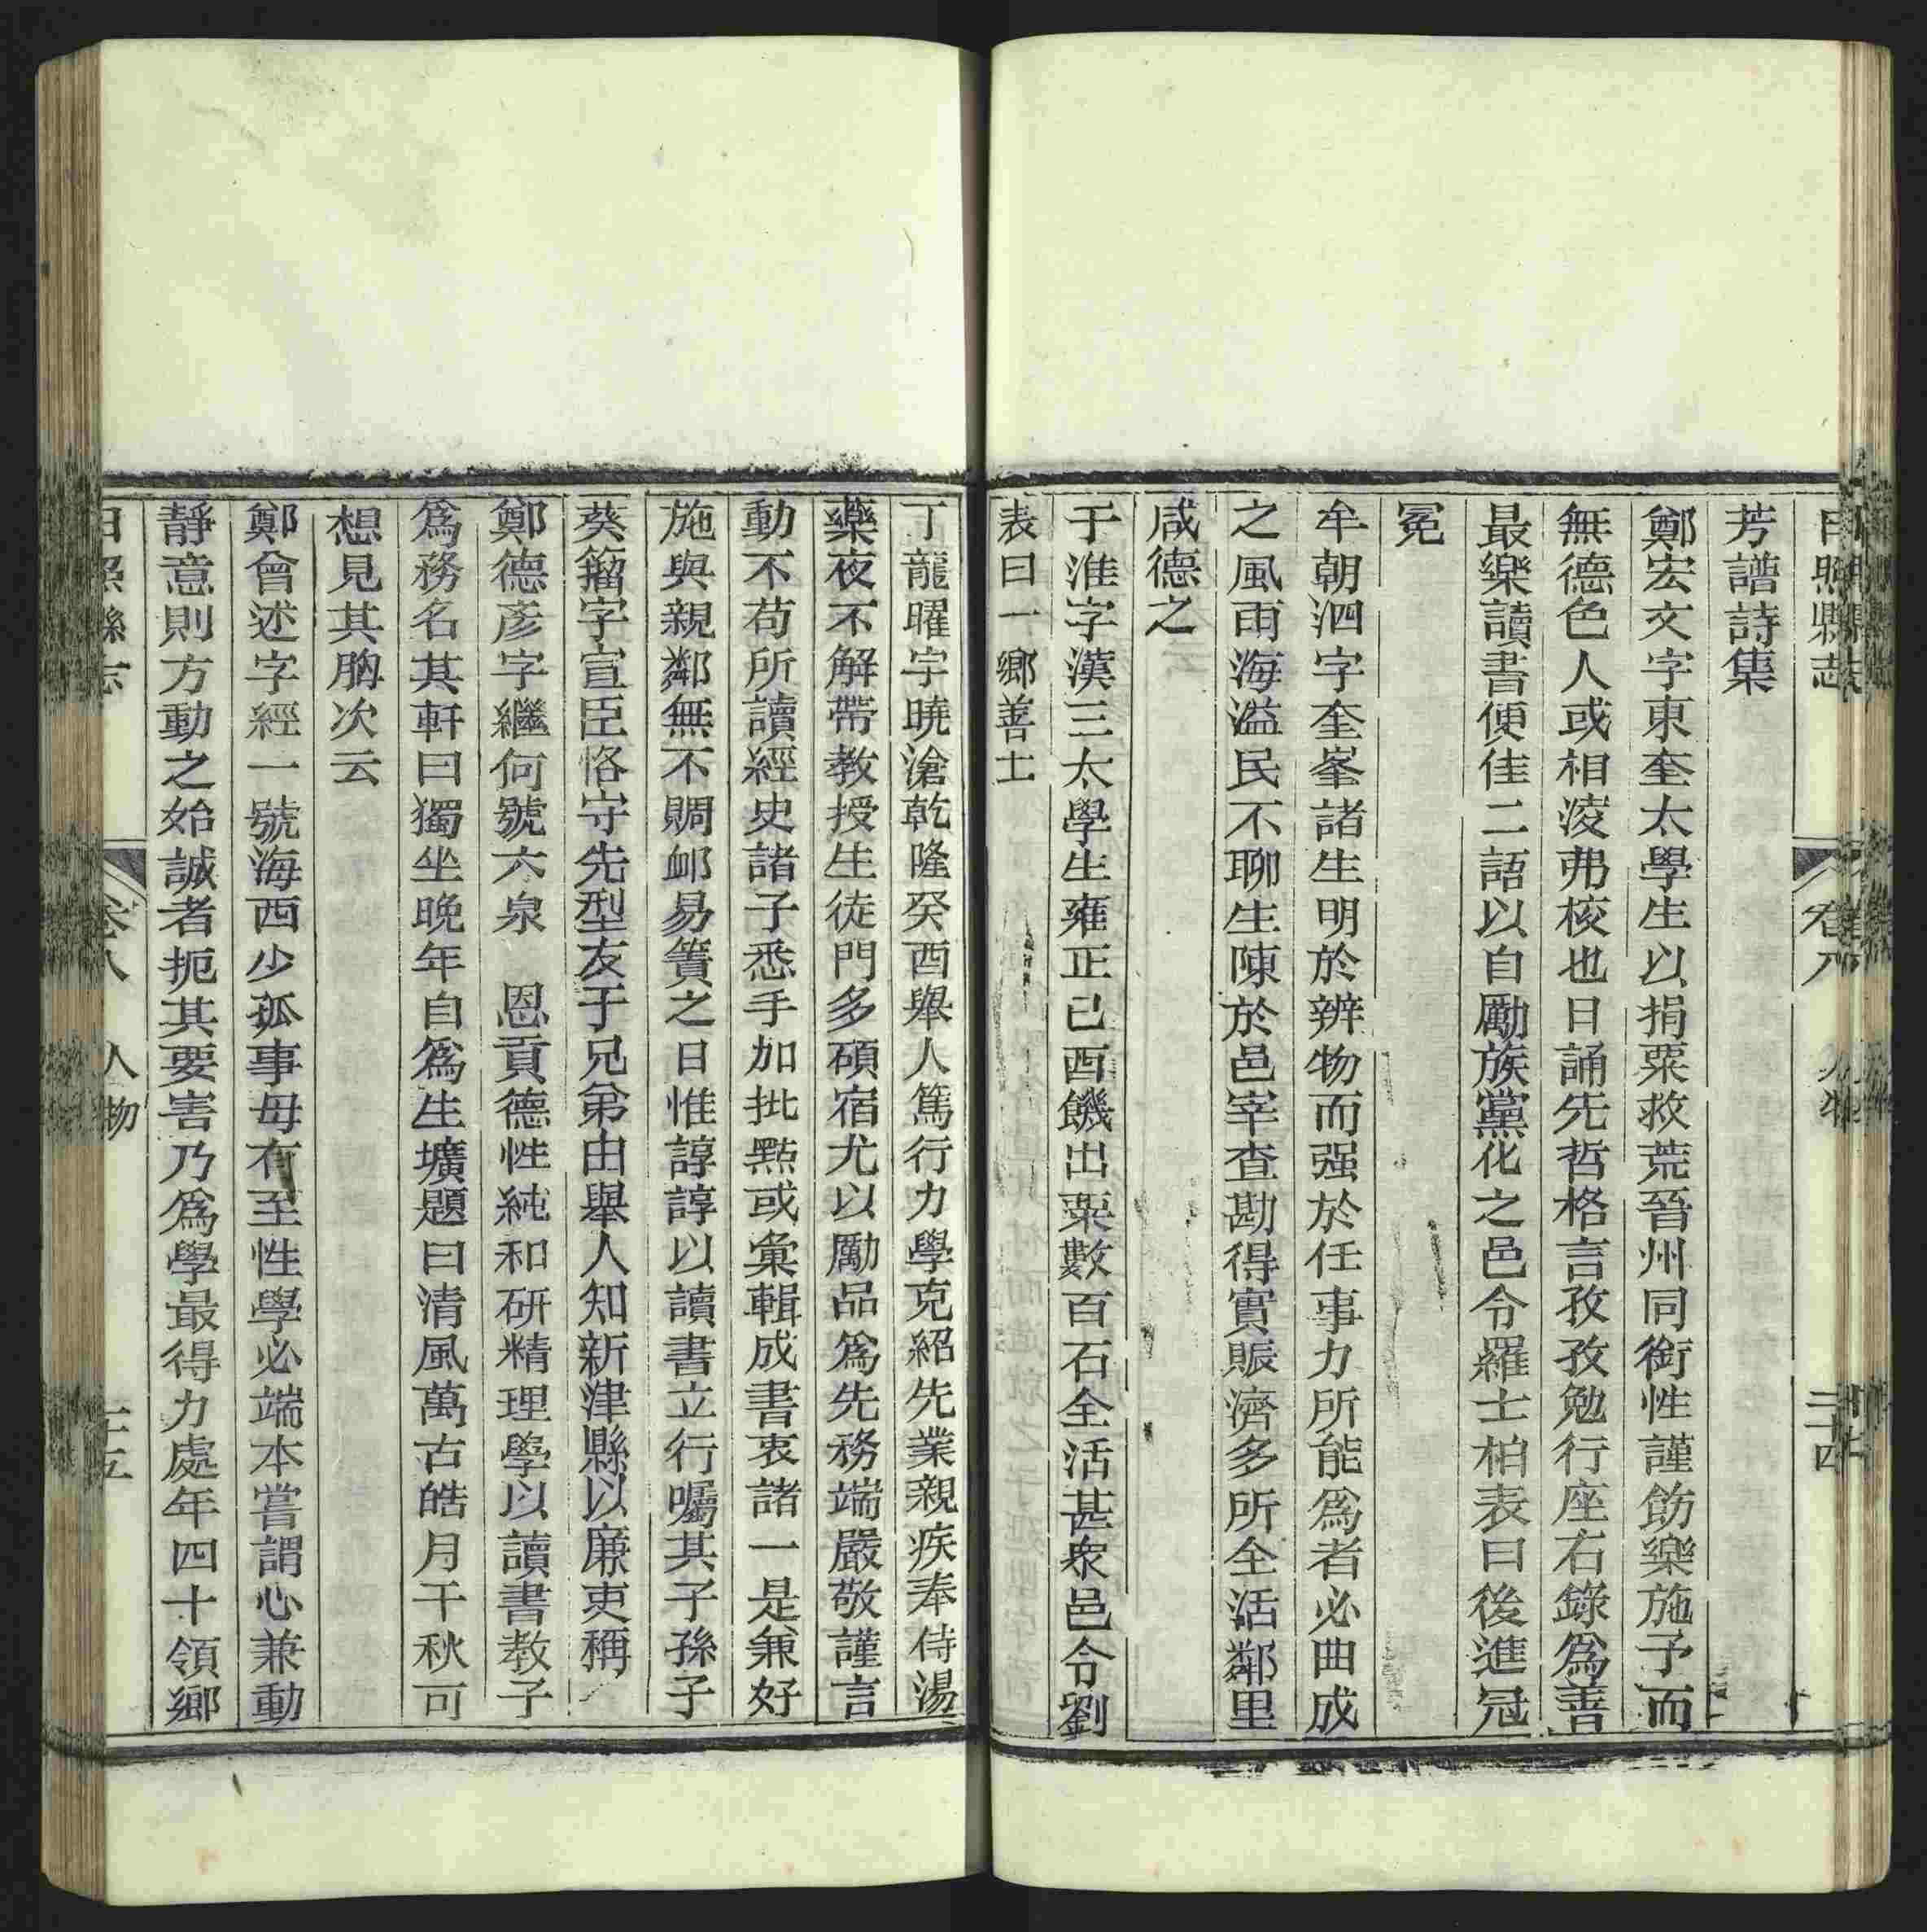 日照縣志 卷八 人物 三十四
芳譜詩集
鄭宏文字東奎太學生以捐粟救荒晉州同銜性謹飭樂施予而
無德色人或相淩弗校也日誦先哲格言孜孜勉行座右錄爲善
最樂讀書便佳二語以自勵族黨化之邑令羅士柏表曰後進冠
冕
牟朝泗字奎峯諸生明於辨物而强於任事力所能爲者必曲成
之風雨海溢民不聊生陳於邑宰查勘得實賑濟多所全活鄰里
咸德之
于淮字漢三太學生雍正己酉饑出粟數百石全活甚衆邑令劉
表曰一鄉善士
丁龍曜字曉滄乾隆癸酉舉人篤行力學克紹先業親疾奉侍湯
藥夜不解帶教授生徒門多碩宿尤以勵品爲先務端嚴敬謹言
動不苟所讀經史諸子悉手加批點或彙輯成書衷諸一是兼好
施與親鄰無不賙衈易簀之日惟諄諄以讀書立行囑其子孫子
葵籀字宣臣恪守先型友于兄弟由舉人知新津縣以廉吏稱
鄭德彥字繼何號六泉 恩貢德性純和研精理學以讀書教子
爲務名其軒曰獨坐晚年自爲生壙題曰清風萬古皓月千秋可
想見其胸次云
鄭曾述字經一號海西少孤事母有至性學必端本嘗謂心兼動
靜意則方動之始誠者扼其要害乃爲學最得力處年四十領鄉
日照縣志 卷八 人物